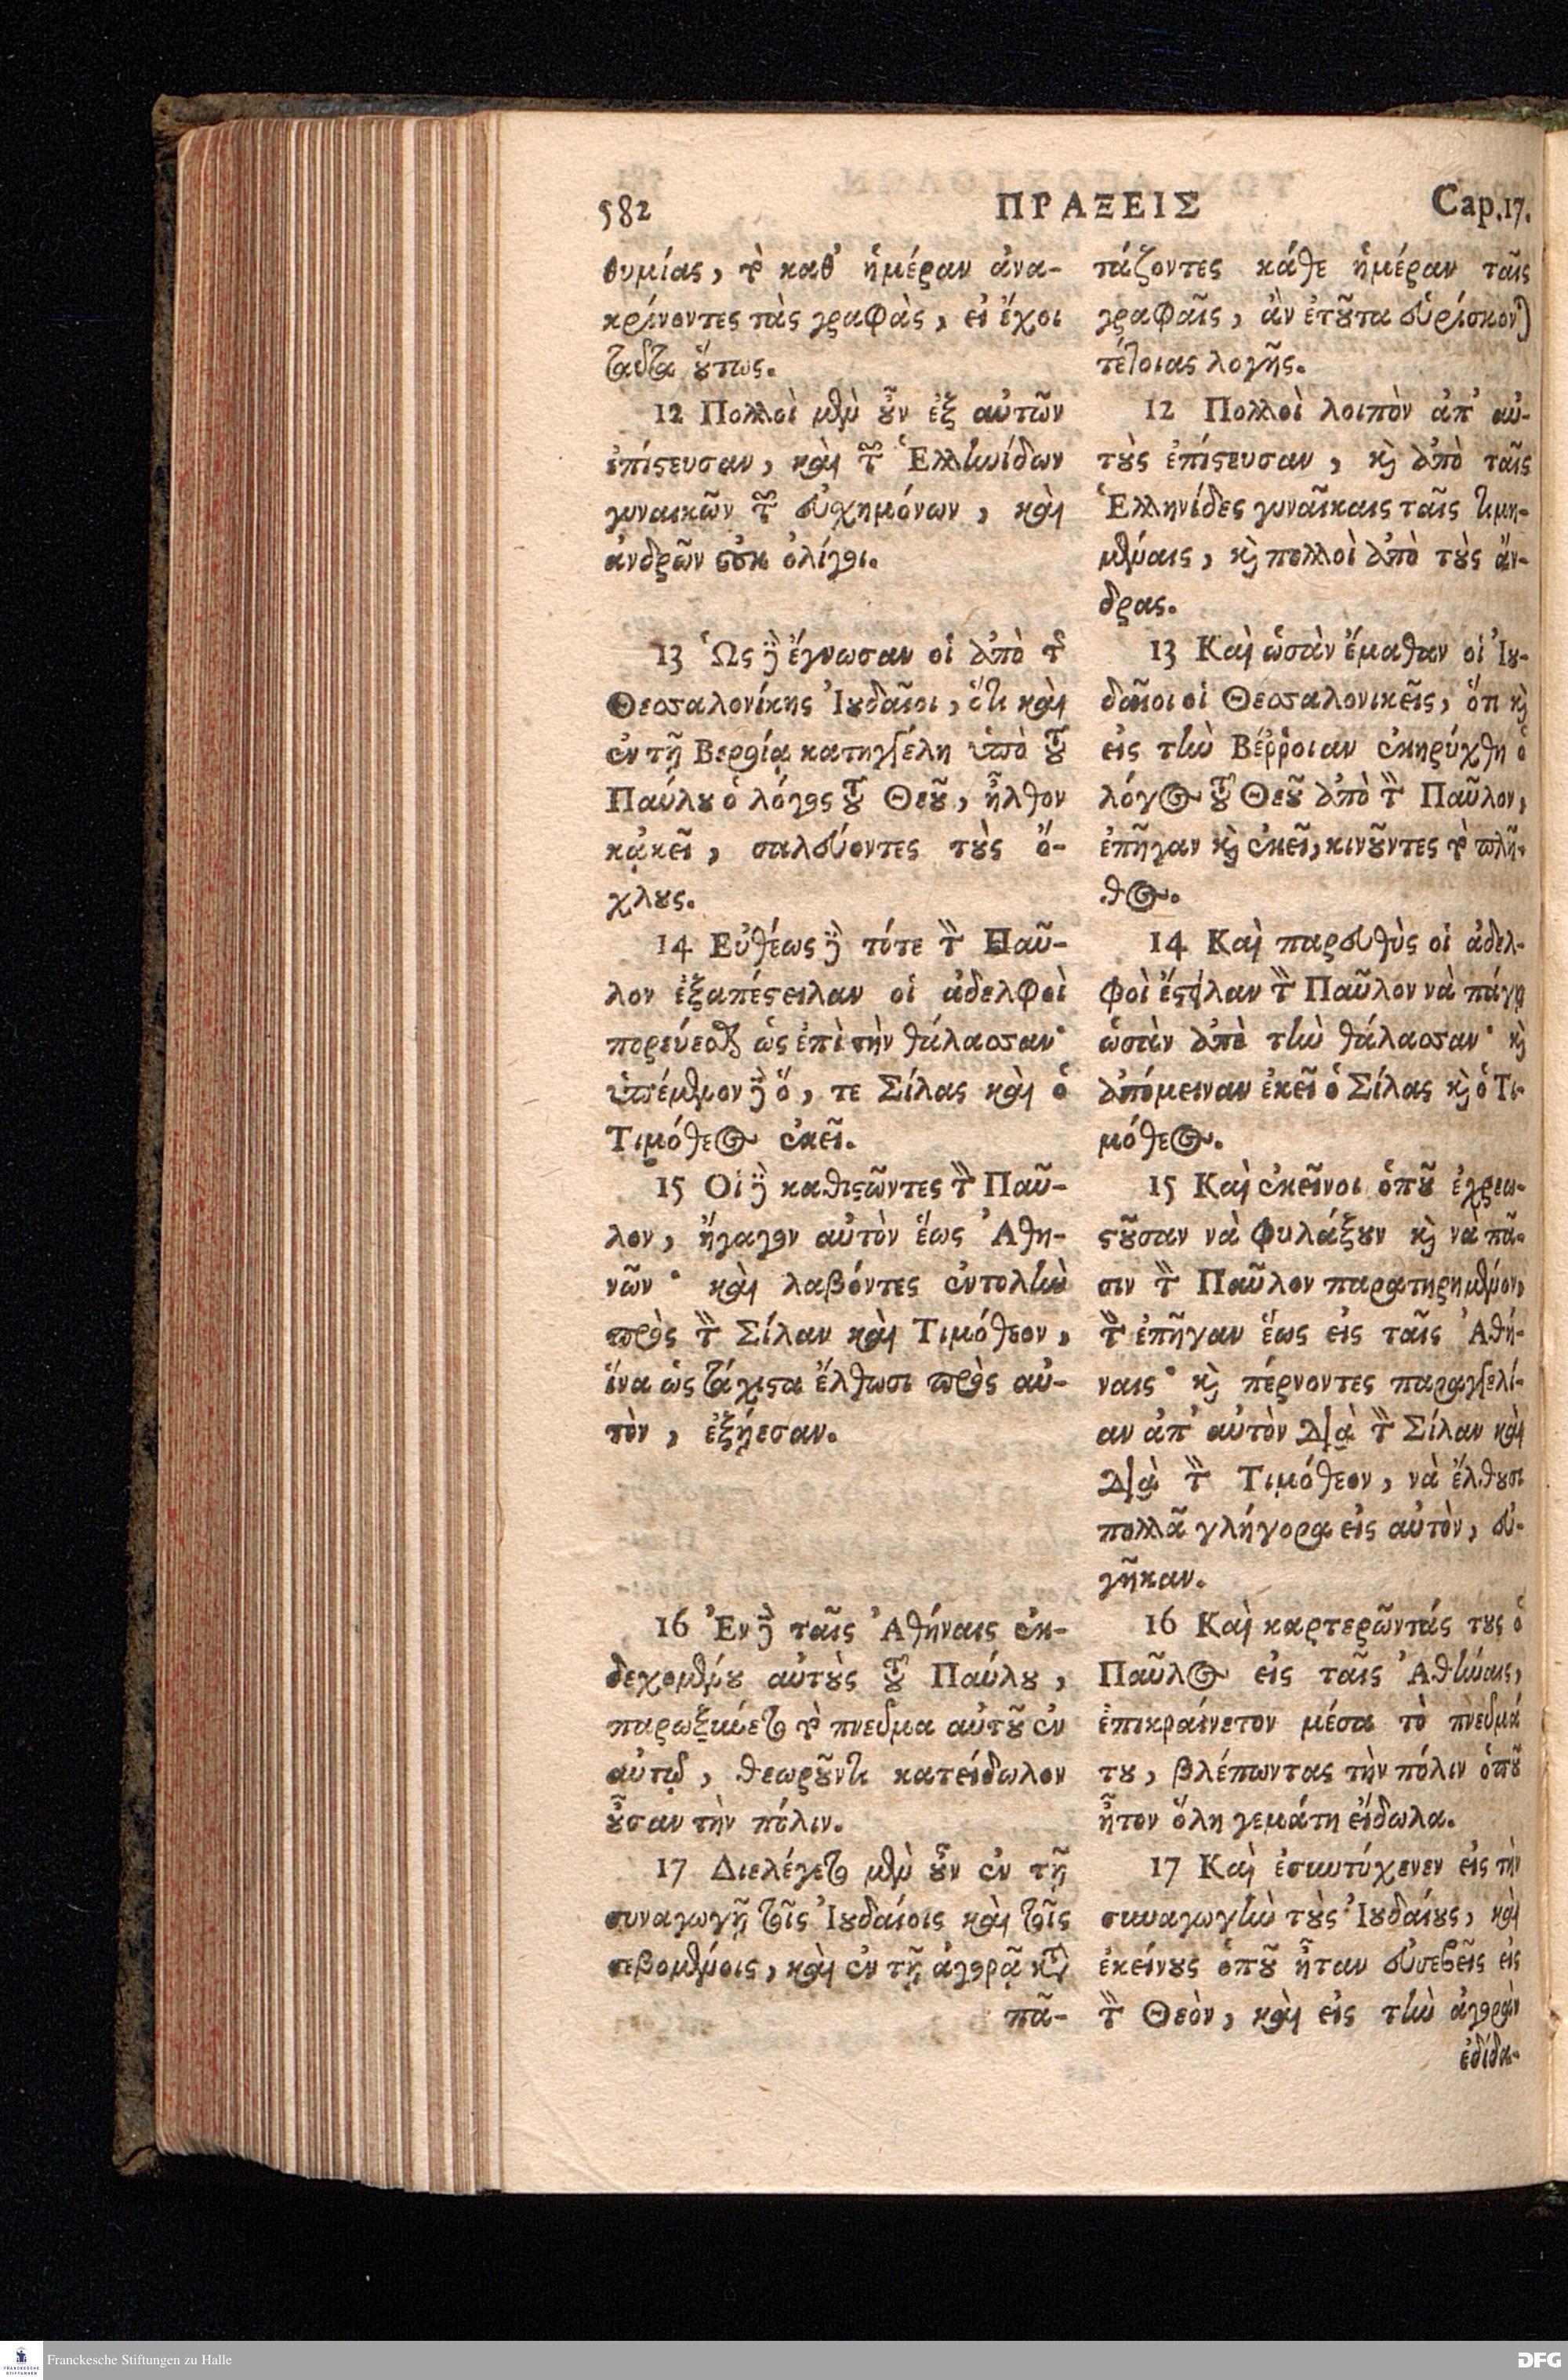 582 ΠΡΑΞΕΙΣ Cap.17.
θυμίας, τὸ καθ' ἡμέραν ἀνα-
κρίνοντες τὰς γραφὰς, εἰ ἔχοι
ταῦτα ὅτως.
12 Πολλοὶ μὲν ȣ̓͂ν ἐξ αὐτῶν
ἐπίϛευσαν, καὶ τῶν Ἑλληνίδων
γυναικῶν τῶν εὐχημόνων, καὶ
ἀνδρῶν οὐκ ὀλίγοι.
13 Ὡς δὲ ἔγνωσαν οἱ ἀπὸ τῆς
Θεσσαλονίκης Ἰȣδαῖοι, ὅτι καὶ
ἐν τῇ Βεροίᾳ κατηγγέλη ὑπὸ τοῦ
Παύλȣ ὁ λόγος τοῦ Θεȣ͂, ἦλθον
κᾀκεῖ, σαλεύοντες τȣ̀ς ὄ-
χλȣς.
14 Εὐθέως δὲ τότε τὸν Παῦ-
λον ἐξαπέϛειλαν οἱ ἀδελφοὶ
πορεύεσθαι ὡς ἐπὶ τὴν θάλασσαν·
ὑπέμενον δὲ ὅ, τε Σίλας καὶ ὁ
Τιμόθεος ἐκεῖ.
15 Οἱ δὲ καθιϛῶντες τὸν Παῦ-
λον, ἤγαγον αὐτὸν ἕως Ἀθη-
νῶν· καὶ λαβόντες ἐντολὴν
πρὸς τὸν Σίλαν καὶ Τιμόθεον,
ἵνα ὡς τάχιϛα ἔλθωσι πρὸς αὐ-
τὸν, ἐξῄεσαν.
16 Ἐν δὲ ταῖς Ἀθήναις ἐκ-
δεχομένȣ αὐτȣ̀ς τοῦ Παύλȣ,
παρωξύνετο τὸ πνεῦμα αὐτȣ͂ ἐν
αὐτῷ, θεωρȣ͂ντι κατείδωλον
ȣ̓͂σαν τὴν πόλιν.
17 Διελέγετο μὲν ȣ̓͂ν ἐν τῇ
συναγωγῇ τοῖς Ἰȣδαίοις καὶ τοῖς
σεβομένοις, καὶ ἐν τῇ ἀγορᾷ κατὰ
πᾶ-
τάζοντες κάθε ἡμέραν ταῖς
γραφαῖς, ἂν ἐτȣ͂τα εὑρίσκονται
τέτοιας λογῆς.
12 Πολλοὶ λοιπὸν ἀπ' αὐ-
τȣ̀ς ἐπίϛευσαν, κ̀ ἀπὸ ταῖς
Ἑλληνίδες γυναῖκαις ταῖς τιμη-
μέναις, κ̀ πολλοὶ ἀπὸ τȣ̀ς ἄν-
δρας.
13 Καὶ ὡσὰν ἔμαθαν οἱ Ἰȣ-
δαῖοι οἱ Θεσσαλονικεῖς, ὅτι κ̀
εἰς τὴν Βέῤῥοιαν ἐκηρύχθη ὁ
λόγος τοῦ Θεȣ͂ ἀπὸ τὸν Παῦλον,
ἐπῆγαν κ̀ ἐκεῖ, κινȣ͂ντες τὸ πλῆ-
θος.
14 Καὶ παρευθὺς οἱ ἀδελ-
φοὶ ἔϛειλαν τὸν Παῦλον νὰ πάγῃ
ὡσὰν ἀπὸ τὴν θάλασσαν· κ̀
ἀπόμειναν ἐκεῖ ὁ Σίλας κ̀ ὁ Τι-
μόθεος.
15 Καὶ ἐκεῖνοι ὁπȣ͂ ἐχρεω-
ϛȣ͂σαν νὰ φυλάξȣν κ̀ νὰ πᾶ-
σιν τὸν Παῦλον παρατηρημένον,
τὸν ἐπῆγαν ἕως εἰς ταῖς Ἀθή-
ναις· κ̀ πέρνοντες παραγγελί-
αν ἀπ' αὐτὸν διὰ τὸν Σίλαν καὶ
διὰ τὸν Τιμόθεον, νὰ ἔλθȣσι
πολλᾶ γλήγορα εἰς αὐτὸν, εὐ-
γῆκαν.
16 Καὶ καρτερῶντάς τȣς ὁ
Παῦλος εἰς ταῖς Ἀθήναις,
ἐπικραίνετον μέσα τὸ πνεῦμά
τȣ, βλέπωντας τὴν πόλιν ὁπȣ͂
ἦτον ὅλη γεμάτη εἴδωλα.
17 Καὶ ἐσυντύχενεν εἰς τὴν
συναγωγὴν τȣ̀ς Ἰȣδαίȣς, καὶ
ἐκείνȣς ὁπȣ͂ ἦταν εὐσεβεῖς εἰς
τὸν Θεὸν, καὶ εἰς τὴν ἀγορὰν
ἐδίδα-
Franckesche Stiftungen zu Halle
DFG